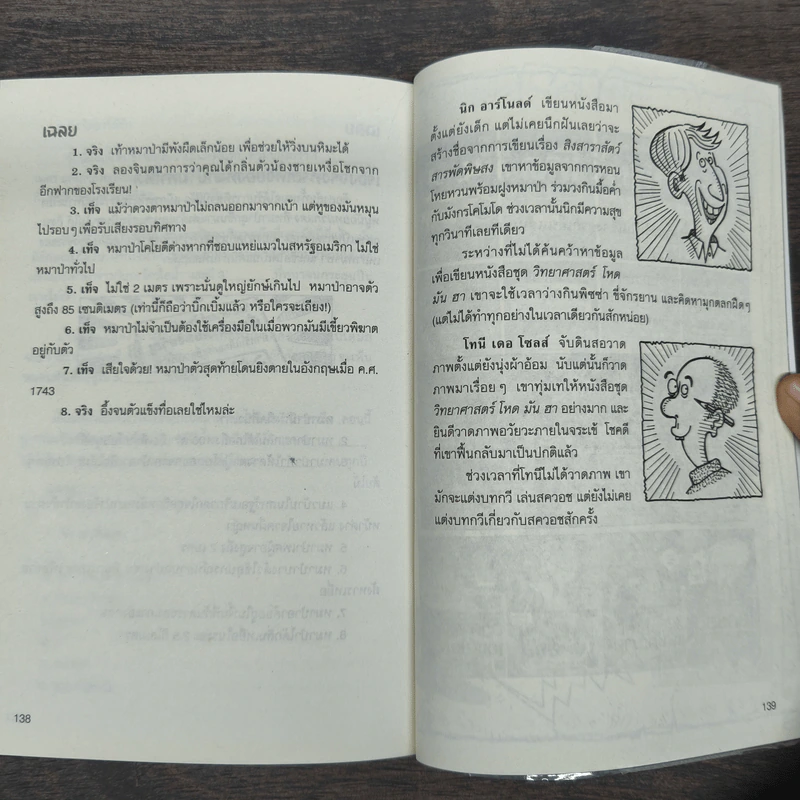 เฉลย
1. จริง เท้าหมาป่ามีพังผืดเล็กน้อย เพื่อช่วยให้วิ่งบนหิมะได้
2. จริง ลองจินตนาการว่าคุณได้กลิ่นตัวน้องชายเหงื่อโชกจาก
อีกฟากของโรงเรียน!
3. เท็จ แม้ว่าดวงตาหมาป่าไม่ถลนออกมาจากเบ้า แต่หูของมันหมุน
ไปรอบๆ เพื่อรับเสียงรอบทิศทาง
4. เท็จ หมาป่าโคโยตีต่างหากที่ชอบแหย่แมวในสหรัฐอเมริกา ไม่ใช่
หมาป่าทั่วไป
5. เท็จ ไม่ใช่ 2 เมตร เพราะนั่นดูใหญ่ยักษ์เกินไป หมาป่าอาจตัว
สูงถึง 85 เซนติเมตร (เท่านี้ก็ถือว่าบิ๊กเบิ้มแล้ว หรือใครจะเถียง!)
6. เท็จ หมาป่าไม่จำเป็นต้องใช้เครื่องมือในเมื่อพวกมันมีเขี้ยวพิฆาต
อยู่กับตัว
7. เท็จ เสียใจด้วย! หมาป่าตัวสุดท้ายโดนยิงตายในอังกฤษเมื่อ ค.ศ.
1743
8. จริง อึ้งจนตัวแข็งทื่อเลยใช่ไหมล่ะ
138
นิก อาร์โนลด์ เขียนหนังสือมา
ตั้งแต่ยังเด็ก แต่ไม่เคยนึกฝันเลยว่าจะ
สร้างชื่อจากการเขียนเรื่อง สิงสาราสัตว์
สารพัดพิษสง เขาหาข้อมูลจากการหอน
โหยหวนพร้อมฝูงหมาป่า ร่วมวงกินมื้อค่ำ
กับมังกรโคโมโด ช่วงเวลานั้นนิกมีความสุข
ทุกวินาทีเลยทีเดียว
ระหว่างที่ไม่ได้ค้นคว้าหาข้อมูล
เพื่อเขียนหนังสือชุด วิทยาศาสตร์ โหด
มัน ฮา เขาจะใช้เวลาว่างกินพิซซ่า ขี่จักรยาน และคิดหามุกตลกฝืดๆ
(แต่ไม่ได้ทำทุกอย่างในเวลาเดียวกันสักหน่อย)
โทนี เดอ โซลส์ จับดินสอวาด
ภาพตั้งแต่ยังนุ่งผ้าอ้อม นับแต่นั้นก็วาด
ภาพมาเรื่อยๆ เขาทุ่มเทให้หนังสือชุด
วิทยาศาสตร์ โหด มัน ฮา อย่างมาก และ
ยินดีวาดภาพอวัยวะภายในจระเข้ โชคดี
ที่เขาฟื้นกลับมาเป็นปกติแล้ว
ช่วงเวลาที่โทนีไม่ได้วาดภาพ เขา
มักจะแต่งบทกวี เล่นสควอช แต่ยังไม่เคย
แต่งบทกวีเกี่ยวกับสควอชสักครั้ง
139